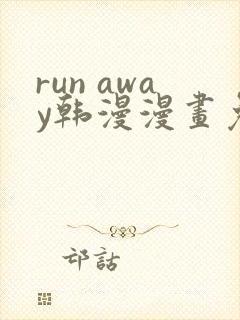 run awa
y韩漫漫畫
邙話